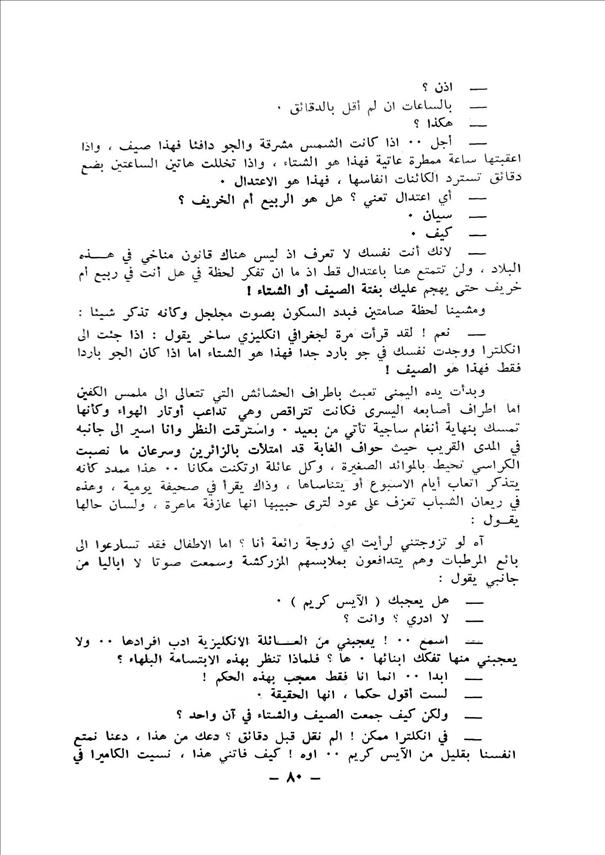 ــ اذن ؟
ــ بالساعات ان لم أقل بالدقائق ٠
ــ هكذا ؟
ــ أجل ٠٠ اذا كانت الشمس مشرقة والجو دافئا فهذا صيف ، واذا
اعقبتها ساعة ممطرة عاتية فهذا هو الشتاء ، واذا تخللت هاتين الساعتين بضع
دقائق تسترد الكائنات انفاسها ، فهذا هو الاعتدال ٠
ــ أي اعتدال تعني ؟ هل هو الربيع أم الخريف ؟
ــ سيان ٠
ــ كيف ٠
ــ لانك أنت نفسك لا تعرف اذ ليس هناك قانون مناخي في هـــذه
البلاد ، ولن تتمتع هنا باعتدال قط اذ ما ان تفكر لحظة في هل أنت في ربيع أم
خريف حتى يهجم عليك بغتة الصيف أو الشتاء !
ومشينا لحظة صامتين فبدد السكون بصوت مجلجل وكانه تذكر شيئا :
ــ نعم ! لقد قرأت مرة لجغرافي انكليزي ساخر يقول : اذا جئت الى
انكلترا ووجدت نفسك في جو بارد جدا فهذا هو الشتاء اما اذا كان الجو باردا
فقط فهذا هو الصيف !
وبدأت يده اليمنى تعبث باطراف الحشائش التي تتعالى الى ملمس الكفين
اما اطراف أصابعه اليسرى فكانت تتراقص وهي تداعب أوتار الهواء وكأنها
تمسك بنهاية أنغام ساجية تأتي من بعيد ٠ واسترقت النظر وانا اسير الى جانبه
في المدى القريب حيث حواف الغابة قد امتلات بالزائرين وسرعان ما نصبت
الكراسي تحيط بالموائد الصغيرة ، وكل عائلة ارتكنت مكانا ٠٠ هذا ممدد كانه
يتذكر اتعاب أيام الاسبوع أو يتناساها ، وذاك يقرأ في صحيفة يومية ، وهذه
في ريعان الشباب تعزف على عود لترى حبيبها انها عازفة ماهرة ، ولسان حالها
يقــول :
آه لو تزوجتني لرأيت اي زوجة رائعة أنا ؟ اما الاطفال فقد تسارعوا الى
بائع المرطبات وهم يتدافعون بملابسهم المزركشة وسمعت صوتا لا اباليا من
جانبي يقول :
ــ هل يعجبك ( الآيس كريم ) ٠
ــ لا ادري ؟ وانت ؟
ــ اسمع ٠٠ ! يعجبني من العــائلة الانكليزية ادب افرادها ٠٠ ولا
يعجبني منها تفكك ابنائها ٠ ها ؟ فلماذا تنظر بهذه الابتسامة البلهاء ؟
ــ ابدا ٠٠ انما انا فقط معجب بهذه الحكم !
ــ لست أقول حكما ، انها الحقيقة ٠
ــ ولكن كيف جمعت الصيف والشتاء في آن واحد ؟
ــ في انكلترا ممكن ! الم نقل قبل دقائق ؟ دعك من هذا ، دعنا نمتع
انفسنا بقليل من الآيس كريم ٠٠ اوه ! كيف فاتني هذا ، نسيت الكاميرا في
ــ ٨٠ ــ